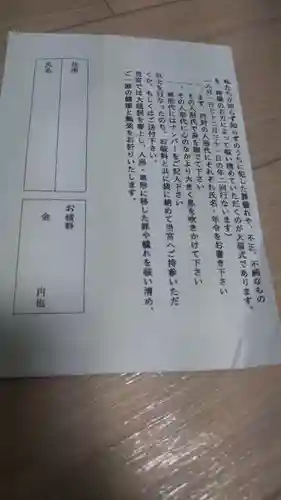 私たちが知らず知らずのうちに犯した罪穢れや、不正、不純なもの
を、神様のお力によって祓い清めていただくのが大祓式であります。
(六月三十日と十二月三十一日の年二回行ないます)
一、同封の人形代にそれぞれ氏名・年令をお書き下さい
ます
一、その人形代で身を撫でて下さい
一、その人形代に心のなかより大きく息を吹きかけて下さい
一、車形代にはナンバーをご記入下さい
以上を行なったのち、お初穂料と共に袋に納めて当宮へご持参いただ
くか、もしくはご送付下さい。
当宮では大祓詞を奏上し、人形・車形に移した罪や穢れを祓い清め、
ご一家の健康と無事をお祈りいたします。
住所
氏名
お初穂料
金
円也